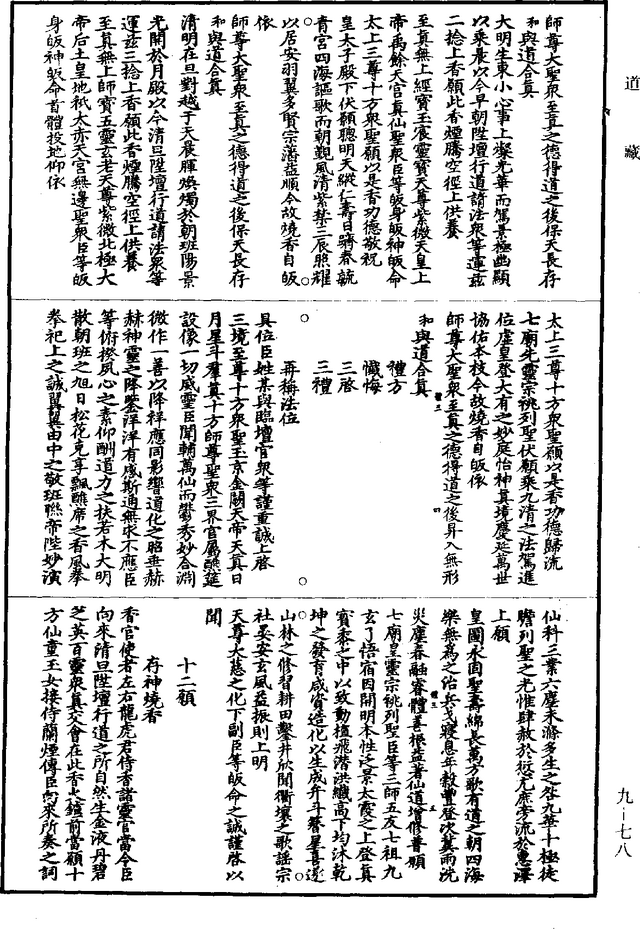 道藏
師尊大聖衆至真之德得道之後保天長存
和與道合真
大明生東小心事上燦光華而駕景極幽顯
以乘晨以今早朝陞壇行道請法衆等運茲
二捻上香願此香煙騰空徑上供養
至真無上經寶玉宸靈寶天尊紫微天皇上
帝禹餘天宮真仙聖衆臣等皈身皈神皈命
太上三尊十方衆聖願以是香功德敬祝
皇太子殿下伏願聰明天縱仁壽日躋春毓
青宮四海謳歌而朝覲風清紫禁二辰照耀
以居安羽翼多賢宗藩益順今故燒香自皈
依
師尊大聖衆至真之德得道之後保天長存
和與道合真
清明在旦對越于天晨暉煥燭於朝班陽景
光開於月殿以今清旦陞壇行道請法衆等
運茲三捻上香願此香煙騰空徑上供養
至真無上師寶五靈玄老天尊紫微北極大
帝后土皇地祇太赤天宮無邊聖衆臣等皈
身皈神皈命首體投地仰依
太上三尊十方衆聖願以是香功德歸流
七廟先靈宗祧列聖伏願乘九清之法駕進
位虛皇登大有之妙庭怡神真境慶延萬世
協佑本枝今故燒香自皈依
師尊大聖衆至真之德得道之後昇入無形
和與道合真
禮方
懺悔
三啓
三禮
再稱法位
具位臣姓某與臨壇官衆等謹重誠上啓
三境至尊十方衆聖玉京金闕天帝天真日
月星斗羣真十方師尊聖衆三界官屬醮筵
設像一切威靈臣聞輔萬仙而鬱秀妙合淵
微作一善以降祥應同影響道化之昭垂赫
赫神靈之降鑒洋洋有感斯通無求不應臣
等俯揆夙心之素仰酬道力之扶若木大明
散朝班之旭日松花克享飄醮席之香風拳
拳祀上之誠翼翼由中之敬班聯帝陛妙演
仙科三業六塵未滌多生之咎九華十極徒
瞻列聖之光惟肆赦於愆尤庶旁流於惠澤
上願
皇圖永固聖壽綿長萬方歌有道之朝四海
樂無爲之治兵戈寢息年穀豐登次冀雨洗
災塵春融眷體善根益著仙道增修普願
七廟皇靈宗祧列聖臣等三師五友七祖九
玄了悟宿因開明本性泛景太霞之上登真
寶黍之中以致動植飛潛洪纖高下均沐乾
坤之發育咸資造化以生成井斗聚星喜遂
山林之修習耕田鑿井欣聞衢壤之歌謠宗
社晏安玄風益振則上明
天尊大慈之化下副臣等皈命之誠謹啓以
聞
十二願
存神燒香
香官使者左右龍虎君侍香諸靈官當令臣
向來清旦陞壇行道之所自然生金液丹碧
芝英百靈衆真交會在此香火爐前當願十
方仙童玉女接侍蘭煙傳臣向來所奏之詞
九-七八